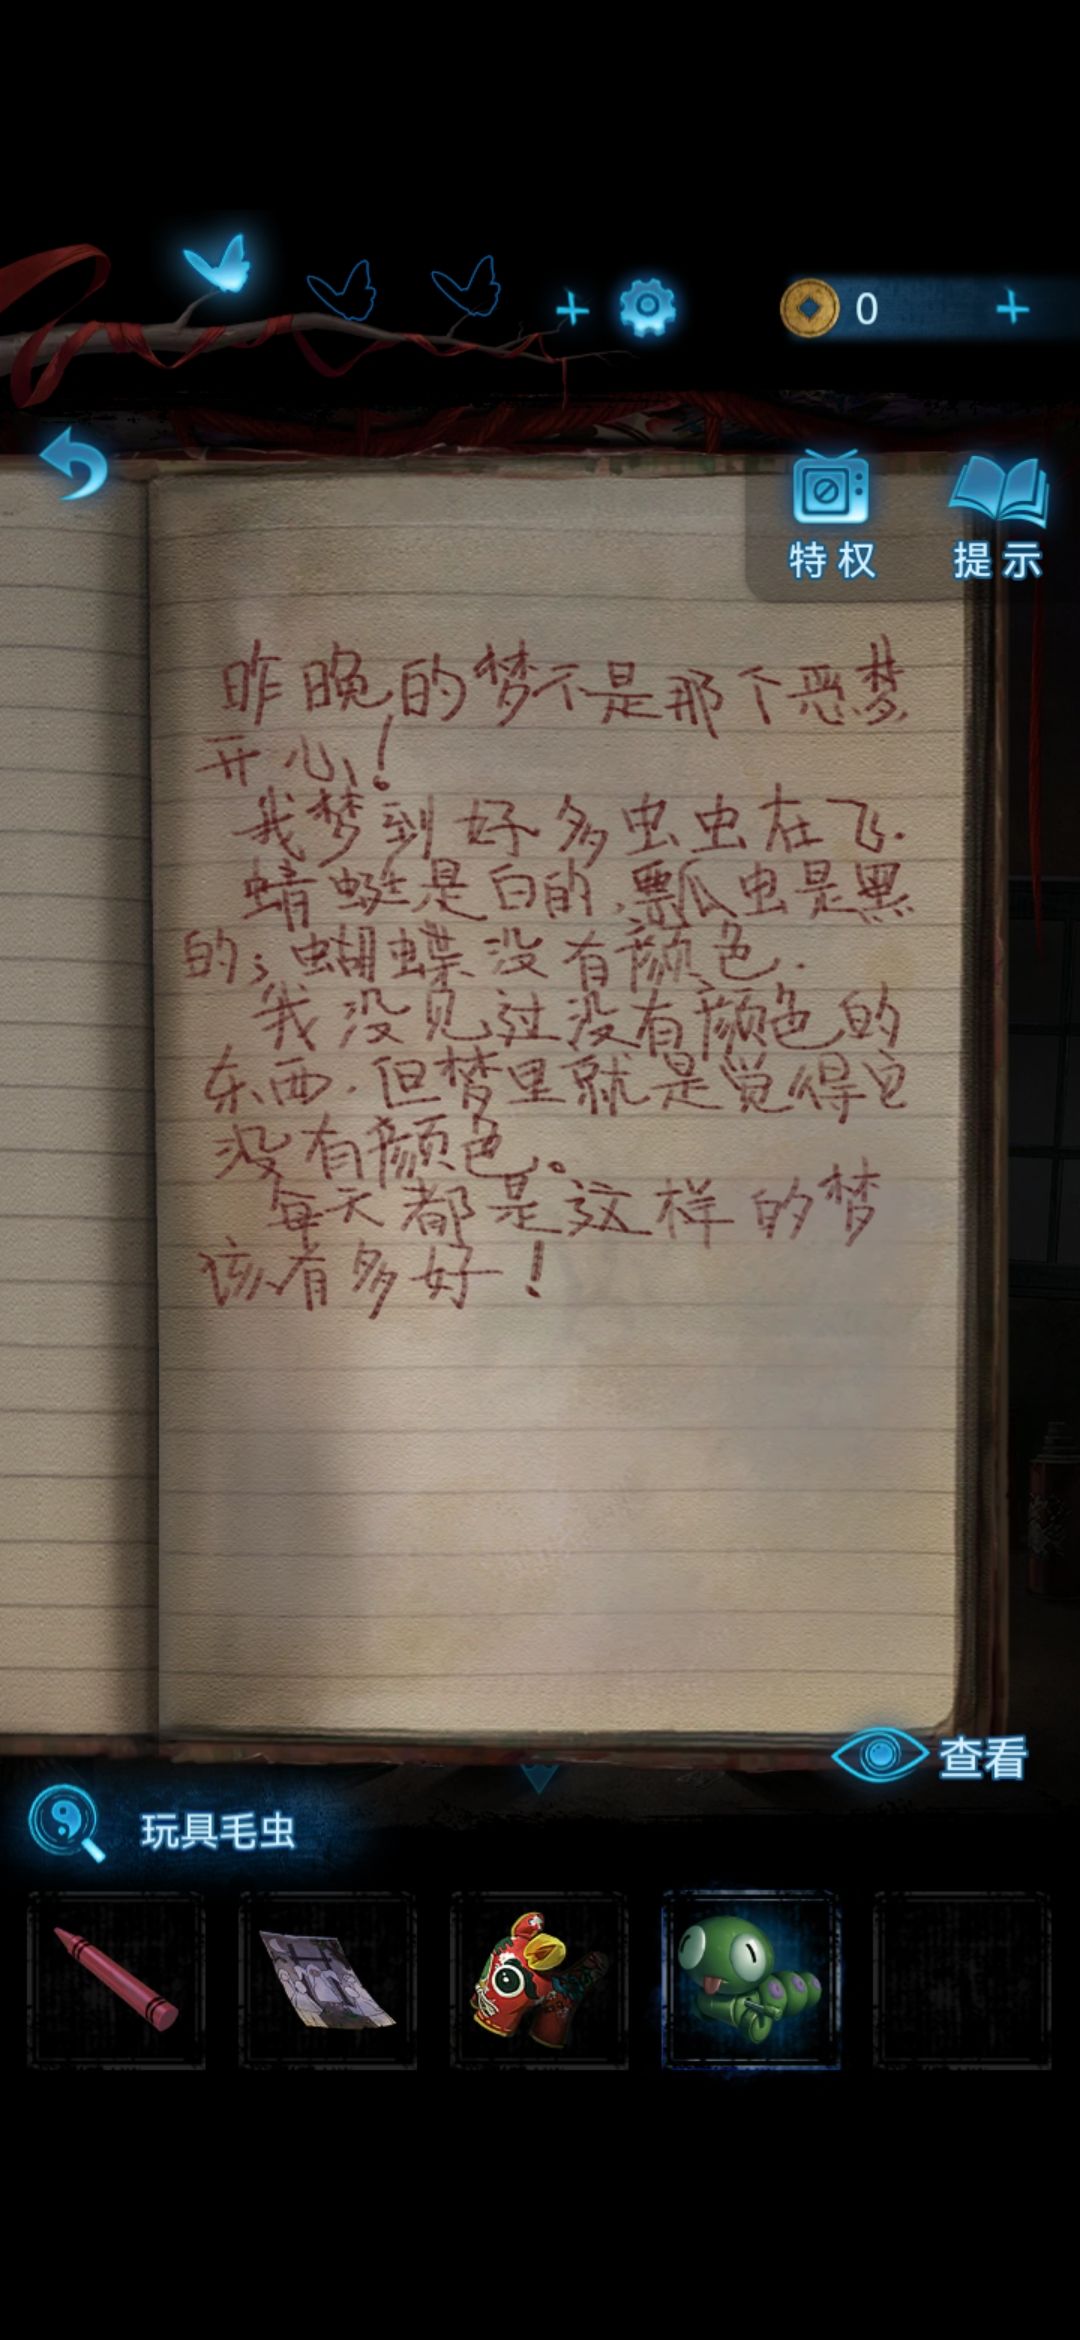 0
特权
提示
昨晚的梦不是那个恶梦
开心!
我梦到好多虫虫在飞.
蜻蜓是白的,瓢瓜虫是黑
的;蝴蝶没有颜色.
我没见过没有颜色的
东西.但梦里就是觉得它
没有颜色。
每天都是这样的梦
该有多好!
查看
玩具毛虫